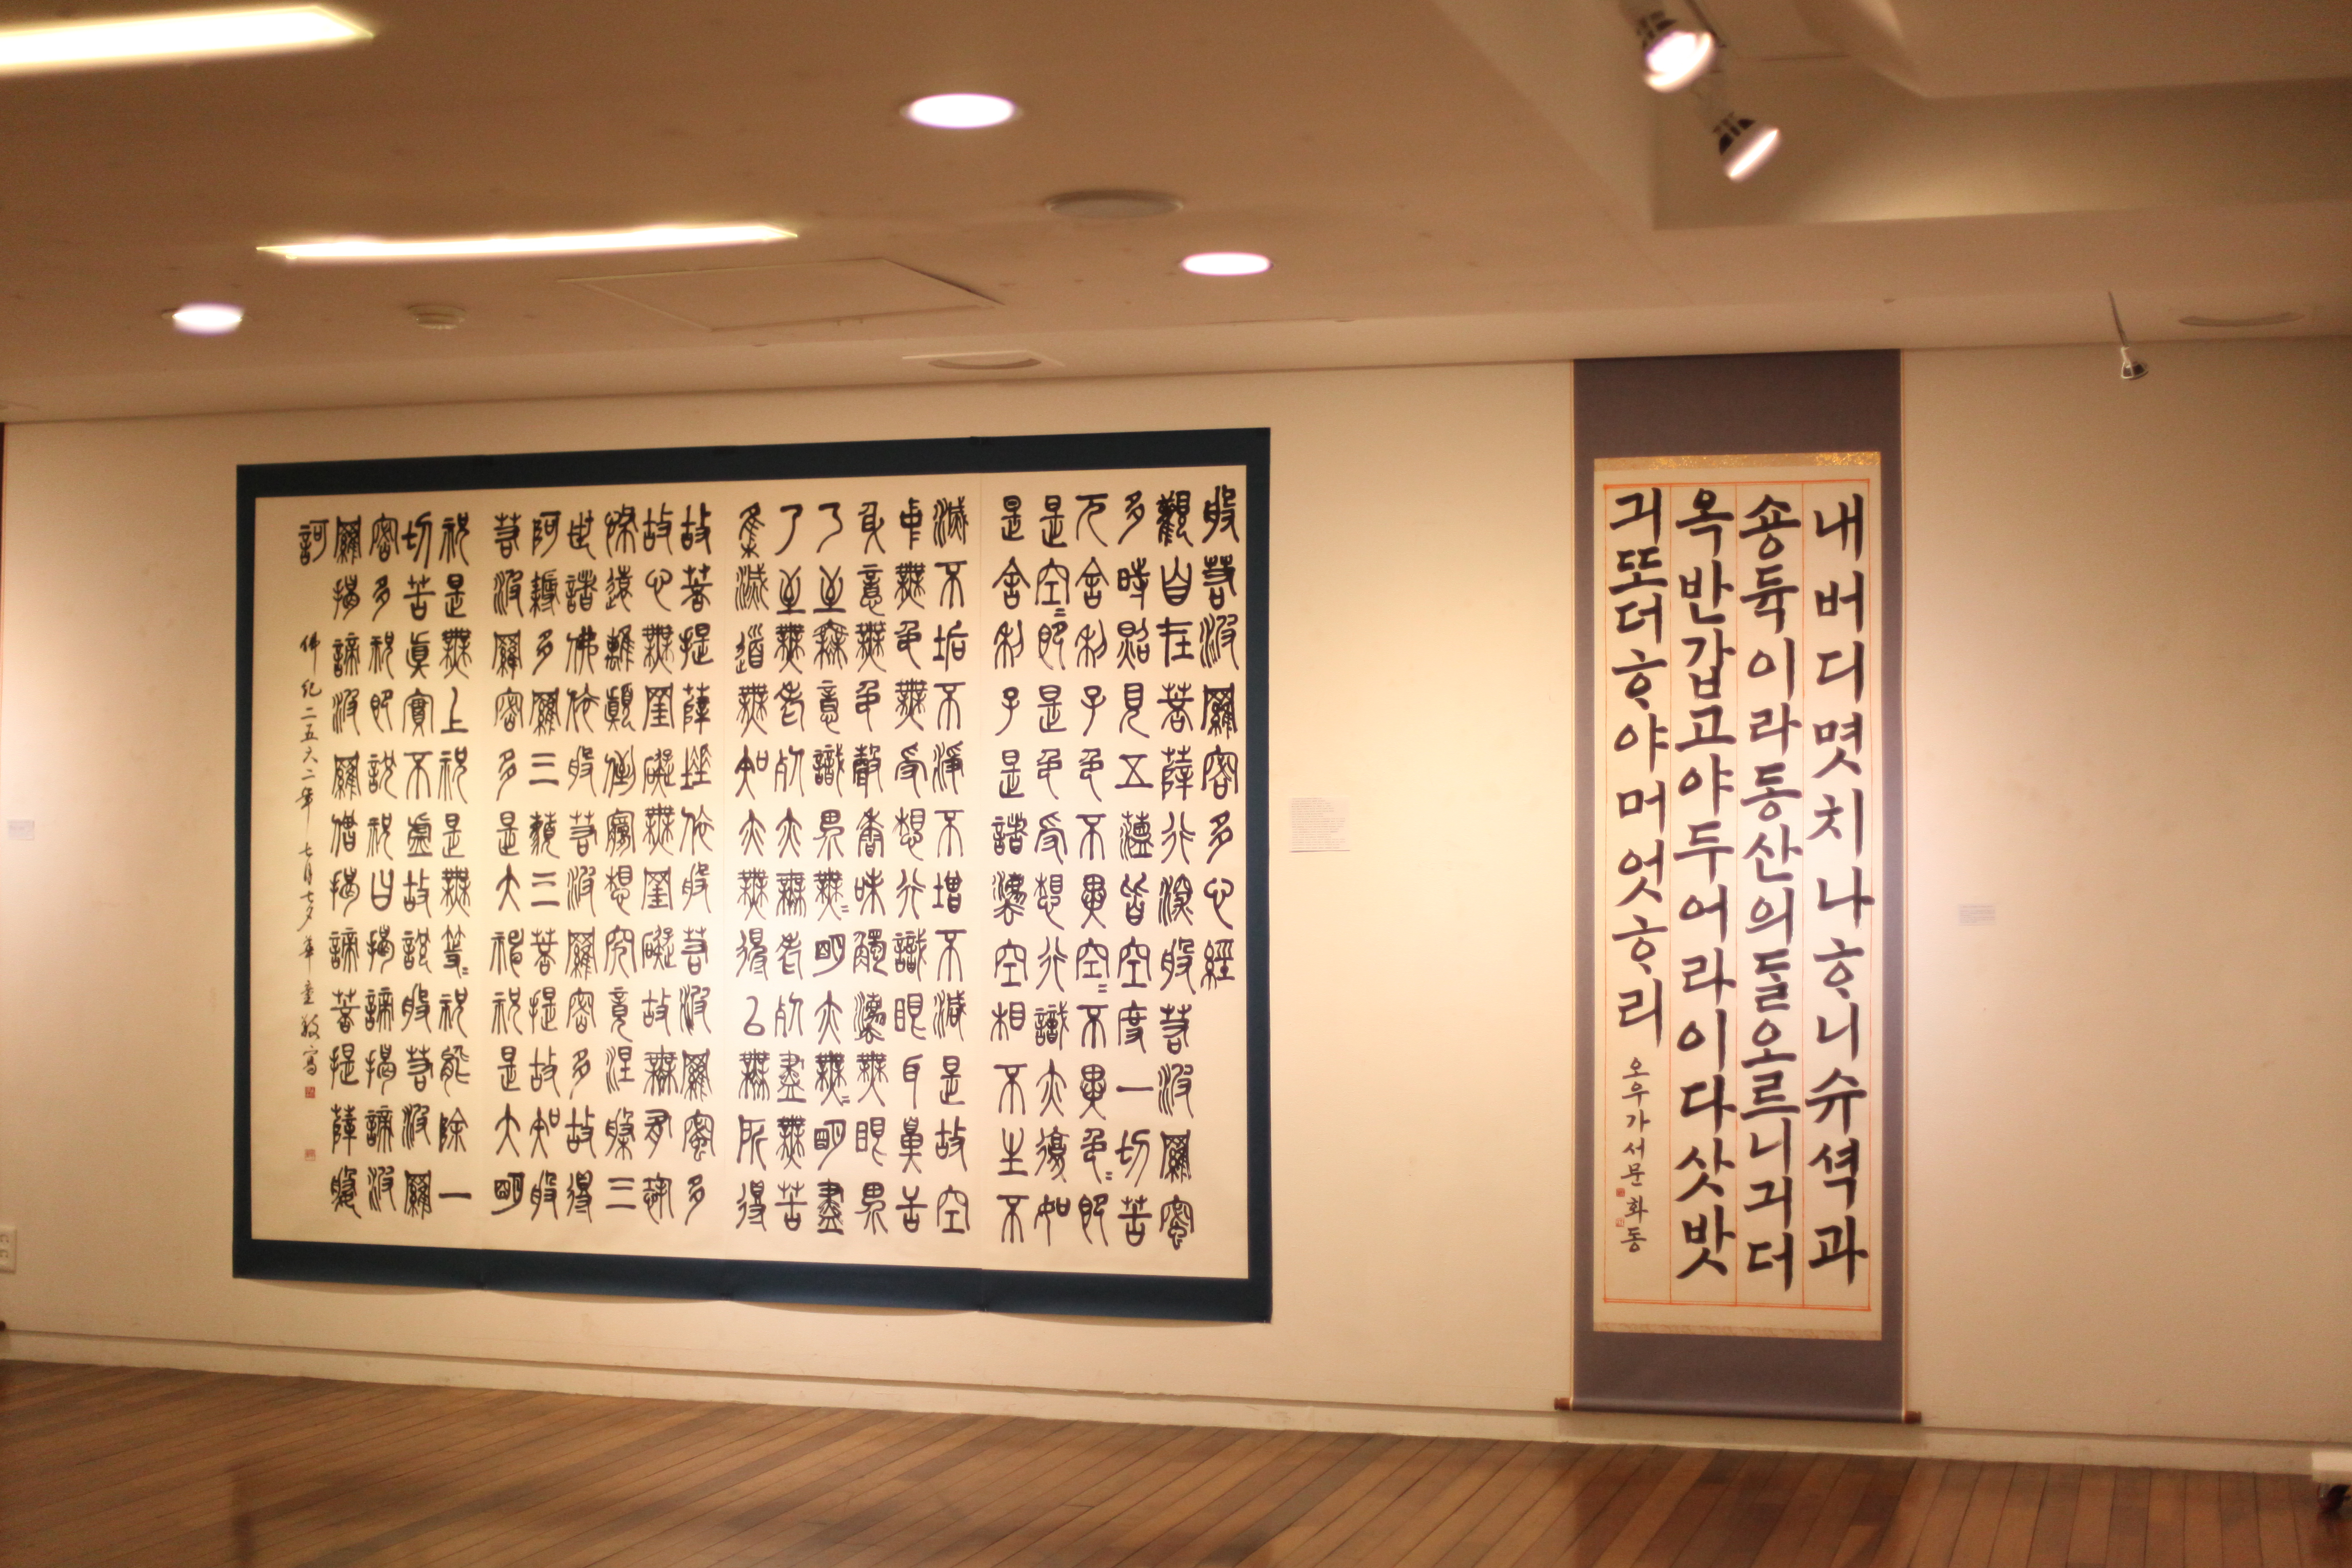 般若波羅密多心經
觀自在菩薩行深般若波羅蜜
多時照見五蘊皆空度一切苦
厄舍利子色不異空=不異色=卽
是空=卽是色受想行識亦復如
是舍利子是諸法空相不生不
滅不垢不淨不增不減是故空
中無色無受想行識眼耳鼻舌
身意無色聲香味觸法無眼界
乃至無意識界無=明亦無=明盡
乃至無老死亦無老死盡無苦
集滅道無知亦無得以無所得
故菩提薩埵依般若波羅蜜多
故心無罣礙無罣礙故無有恐
怖遠離顚倒夢想究竟涅槃三
世諸佛依般若波羅密多故得
阿耨多羅三藐三菩提故知般
若波羅密多是大神呪是大明
呪是無上呪是無等=呪能除一
切苦眞實不虛故說般若波羅
密多呪卽說呪曰揭諦揭諦波
羅揭諦波羅僧揭諦菩提薩婆
訶 佛紀二五六二年 七月七夕 華童敬寫
내버디몃치나ᄒᆞ니슈셕과
숑듁이라동산의ᄃᆞᆯ오르니긔더
옥반갑고야두어라이다삿밧
긔또더ᄒᆞ야머엇ᄒᆞ리 오우가서문 화동